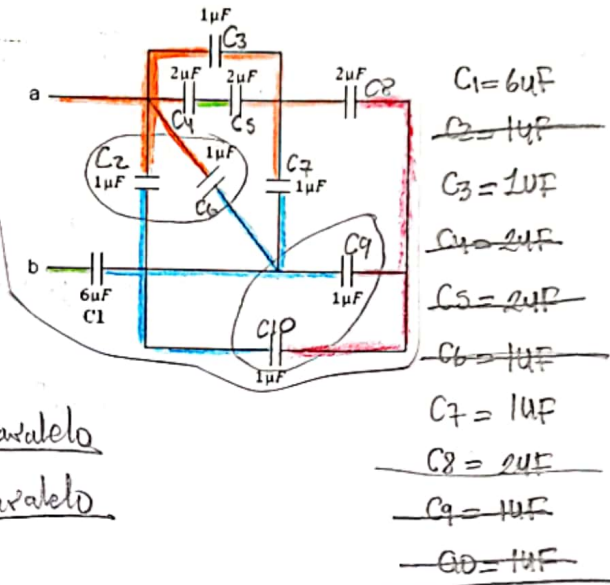 1μF
C3
2μF 2μF 2μF C8
a
C4 C5
C2 1μF C7
1μF 1μF
C6
C9
b
6μF 1μF
C1
C10
1μF
C1=6uF
C2=1uF
C3=1uF
C4=2uF
C5=2uF
C6=1uF
C7=1uF
C8=2uF
C9=1uF
C10=1uF